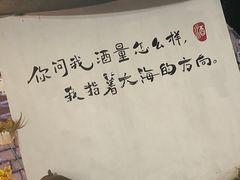 你问我酒量怎么样，
我指着大海的方向。
酒